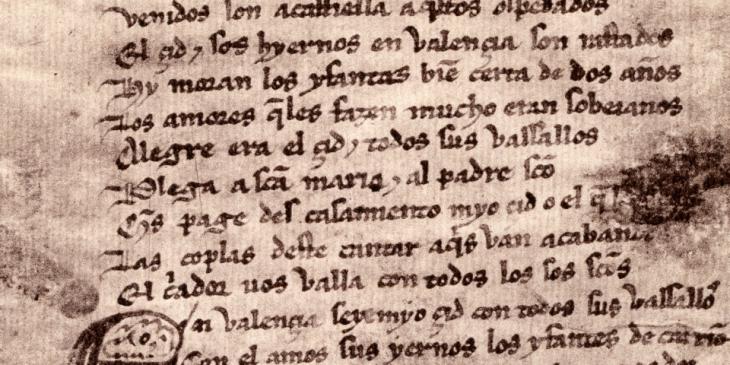 venidos son
El çid e sos hyernos en valençia son rastados
Hy moran los yfantes bien çerca de dos años
Los amores q̃les fazen mucho eran sobeianos
Alegre era el çid e todos sus vassallos
Plega a scã maria e al padre scõ
ques page des casamiento myo çid o el q̃
Las coplas deste cantar aquis van acabando
El cador vos valla con todos los sos scõs
En valençia seye myo çid con todos sus vassallos
Con el amos sus yernos los yfantes de carrion